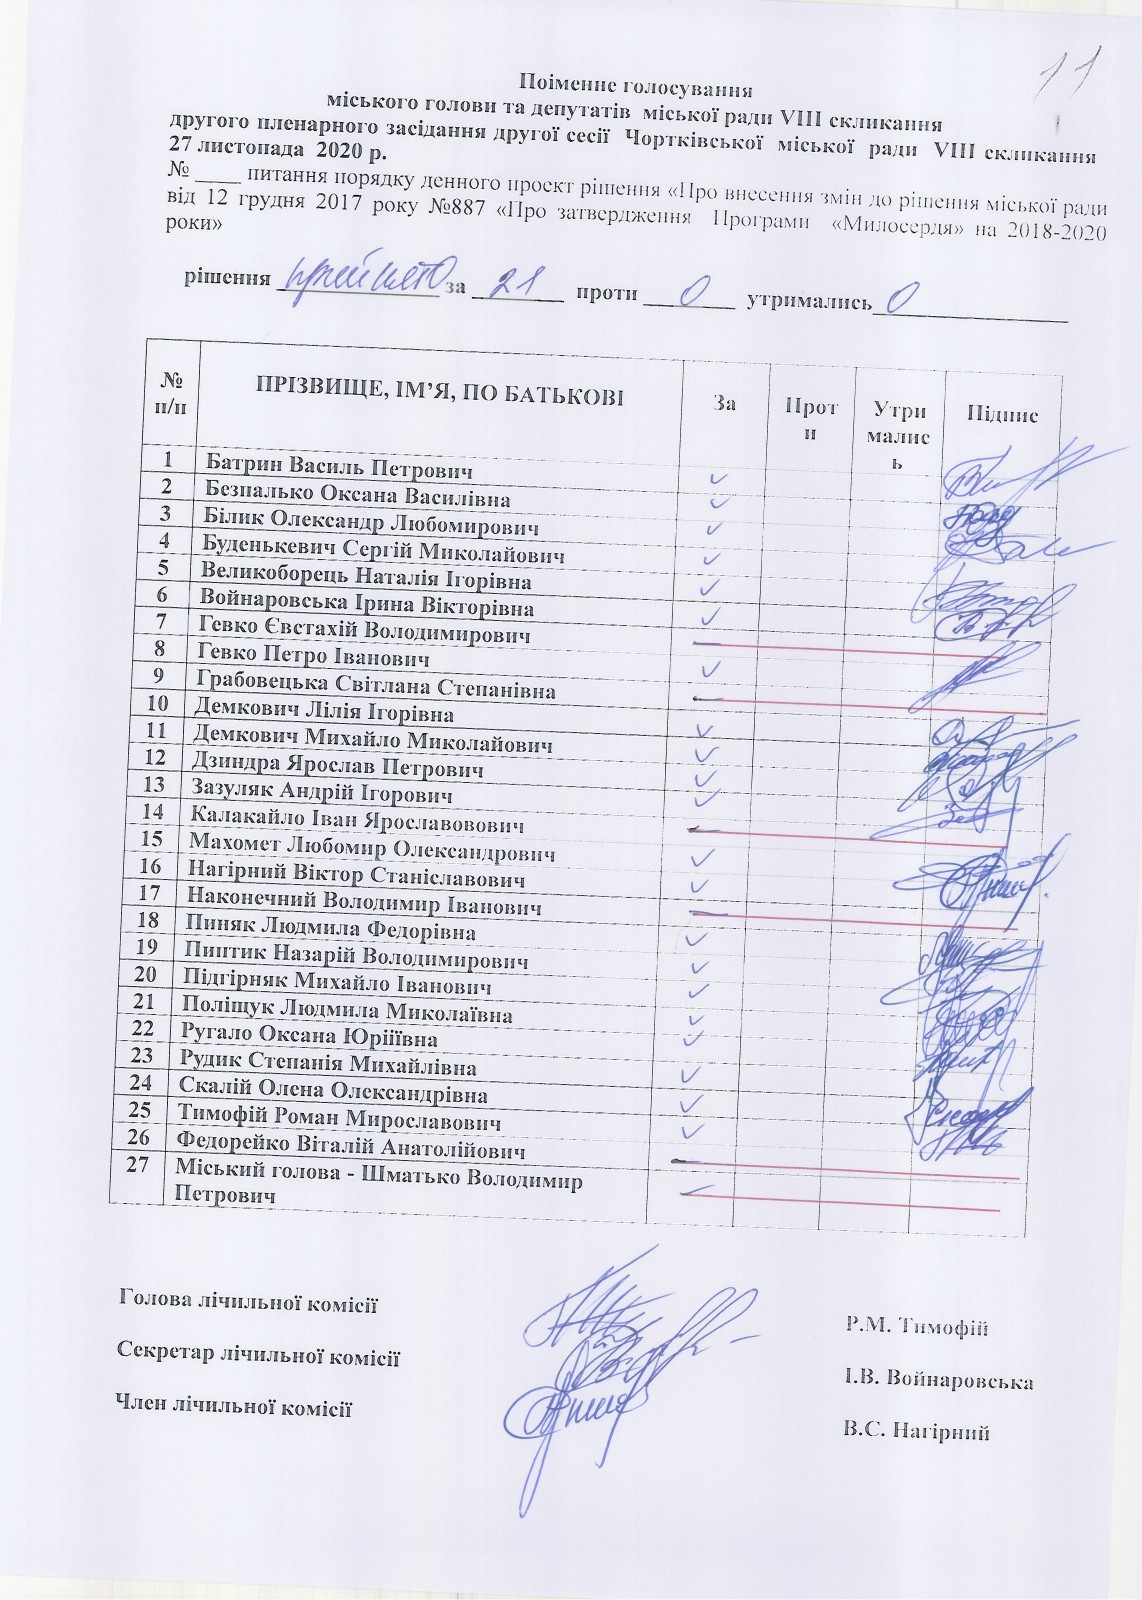 11
Поіменне голосування
міського голови та депутатів міської ради VIII скликання
другого пленарного засідання другої сесії Чортківської міської ради VIII скликання
27 листопада 2020 р.
№ ____ питання порядку денного проєкт рішення «Про внесення змін до рішення міської ради
від 12 грудня 2017 року №887 «Про затвердження Програми «Милосердя» на 2018-2020
роки»
рішення прийнято за 21 проти 0 утримались 0
№ п/п ПРІЗВИЩЕ, ІМ’Я, ПО БАТЬКОВІ За Проти Утрималась Підпис
1 Батрин Василь Петрович ✓
2 Безпалько Оксана Василівна ✓
3 Білик Олександр Любомирович ✓
4 Буденькевич Сергій Миколайович ✓
5 Великоборець Наталія Ігорівна ✓
6 Войнаровська Ірина Вікторівна ✓
7 Гевко Євстахій Володимирович
8 Гевко Петро Іванович ✓
9 Грабовецька Світлана Степанівна
10 Демкович Лілія Ігорівна ✓
11 Демкович Михайло Миколайович ✓
12 Дзиндра Ярослав Петрович ✓
13 Зазуляк Андрій Ігорович ✓
14 Калакайло Іван Ярославовович
15 Махомет Любомир Олександрович ✓
16 Нагірний Віктор Станіславович ✓
17 Наконечний Володимир Іванович
18 Пиняк Людмила Федорівна ✓
19 Пиптик Назарій Володимирович ✓
20 Підгірняк Михайло Іванович ✓
21 Поліщук Людмила Миколаївна ✓
22 Ругало Оксана Юріїївна ✓
23 Рудик Степанія Михайлівна ✓
24 Скалій Олена Олександрівна ✓
25 Тимофій Роман Мирославович ✓
26 Федорейко Віталій Анатолійович
27 Міський голова - Шматько Володимир
Петрович
Голова лічильної комісії Р.М. Тимофій
Секретар лічильної комісії І.В. Войнаровська
Член лічильної комісії В.С. Нагірний